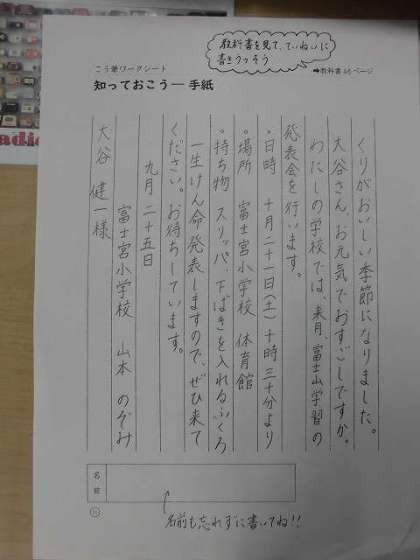 教科書を見て、ていねいに
書きうつそう
こう筆ワークシート
➡教科書46ページ
知っておこう―手紙
くりがおいしい季節になりました。
大谷さん、お元気でおすごしですか。
わたしの学校では、来月、富士山学習の
発表会を行います。
・日時 十月二十一日(土)十時三十分より
・場所 富士宮小学校 体育館
・持ち物 スリッパ、下ばきを入れるふくろ
一生けん命発表しますので、ぜひ来て
ください。お待ちしています。
九月二十五日
富士宮小学校 山本 のぞみ
大谷 健一様
名前
名前も忘れずに書いてね!!